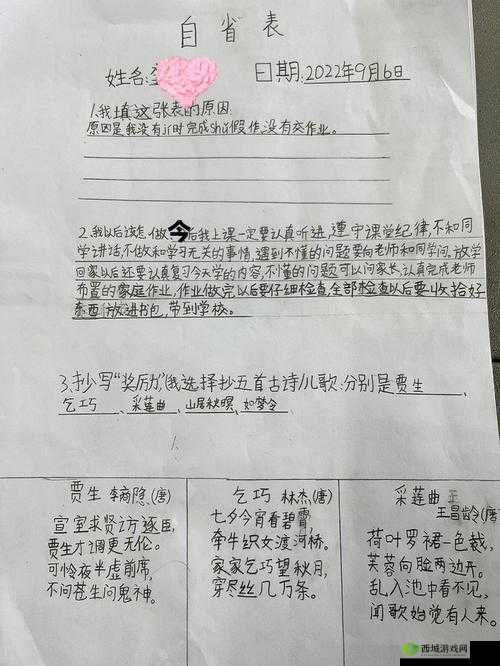 自省表
姓名:
日期:2022年9月6日
1.我填这张表的原因.
原因是我没有jr时完成shǔ假作没有交作业。
2.我以后该怎做今后我上课一定要认真听进,遵守课堂纪律,不和同
学讲话,不做和学习无关的事情,遇到不懂的问题要向老师和同学问、放学
回家以后还要认真复习今天学的内容,不懂的问题可以问家长,认真完成老师
布置的家庭作业,作业做完以后要仔细检查,全部检查以后要收拾好
东西放进书包,带到学校。
3.抄写“奖历”(我选择抄五首古诗/儿歌:分别是贾生、
乞巧、采莲曲、山居秋暝、如梦令
贾生 李商隐(唐)
宣室求贤访逐臣,
贾生才调更无伦。
可怜夜半虚前席,
不问苍生问鬼神。
乞巧 林杰(唐)
七夕今宵看碧霄,
牵牛织女渡河桥。
家家乞巧望秋月,
穿尽丝几万条。
采莲曲 王
王昌龄(唐)
荷叶罗裙一色裁,
芙蓉向脸两边开。
乱入池中看不见,
闻歌始觉有人来。
西城游戏网